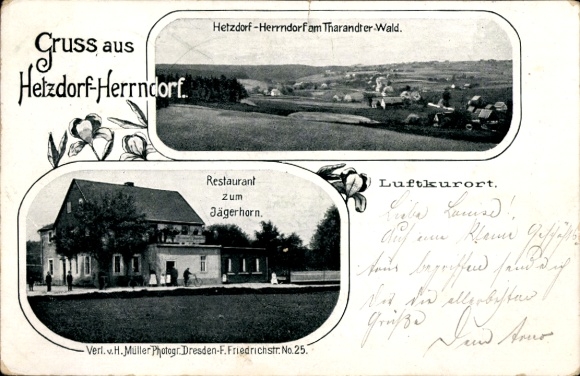 Gruss aus
Hetzdorf-Herrndorf.
Hetzdorf-Herrndorf am Tharandter-Wald.
Restaurant
zum
Jägerhorn.
Luftkurort.
Liebe Louise!
Auf eine kleine Geschäfts-
tour begriffen sende ich
Dir die allerbesten
Grüße
Dein Arno
Verl. v. H. Müller Photogr. Dresden-F. Friedrichstr. No. 25.